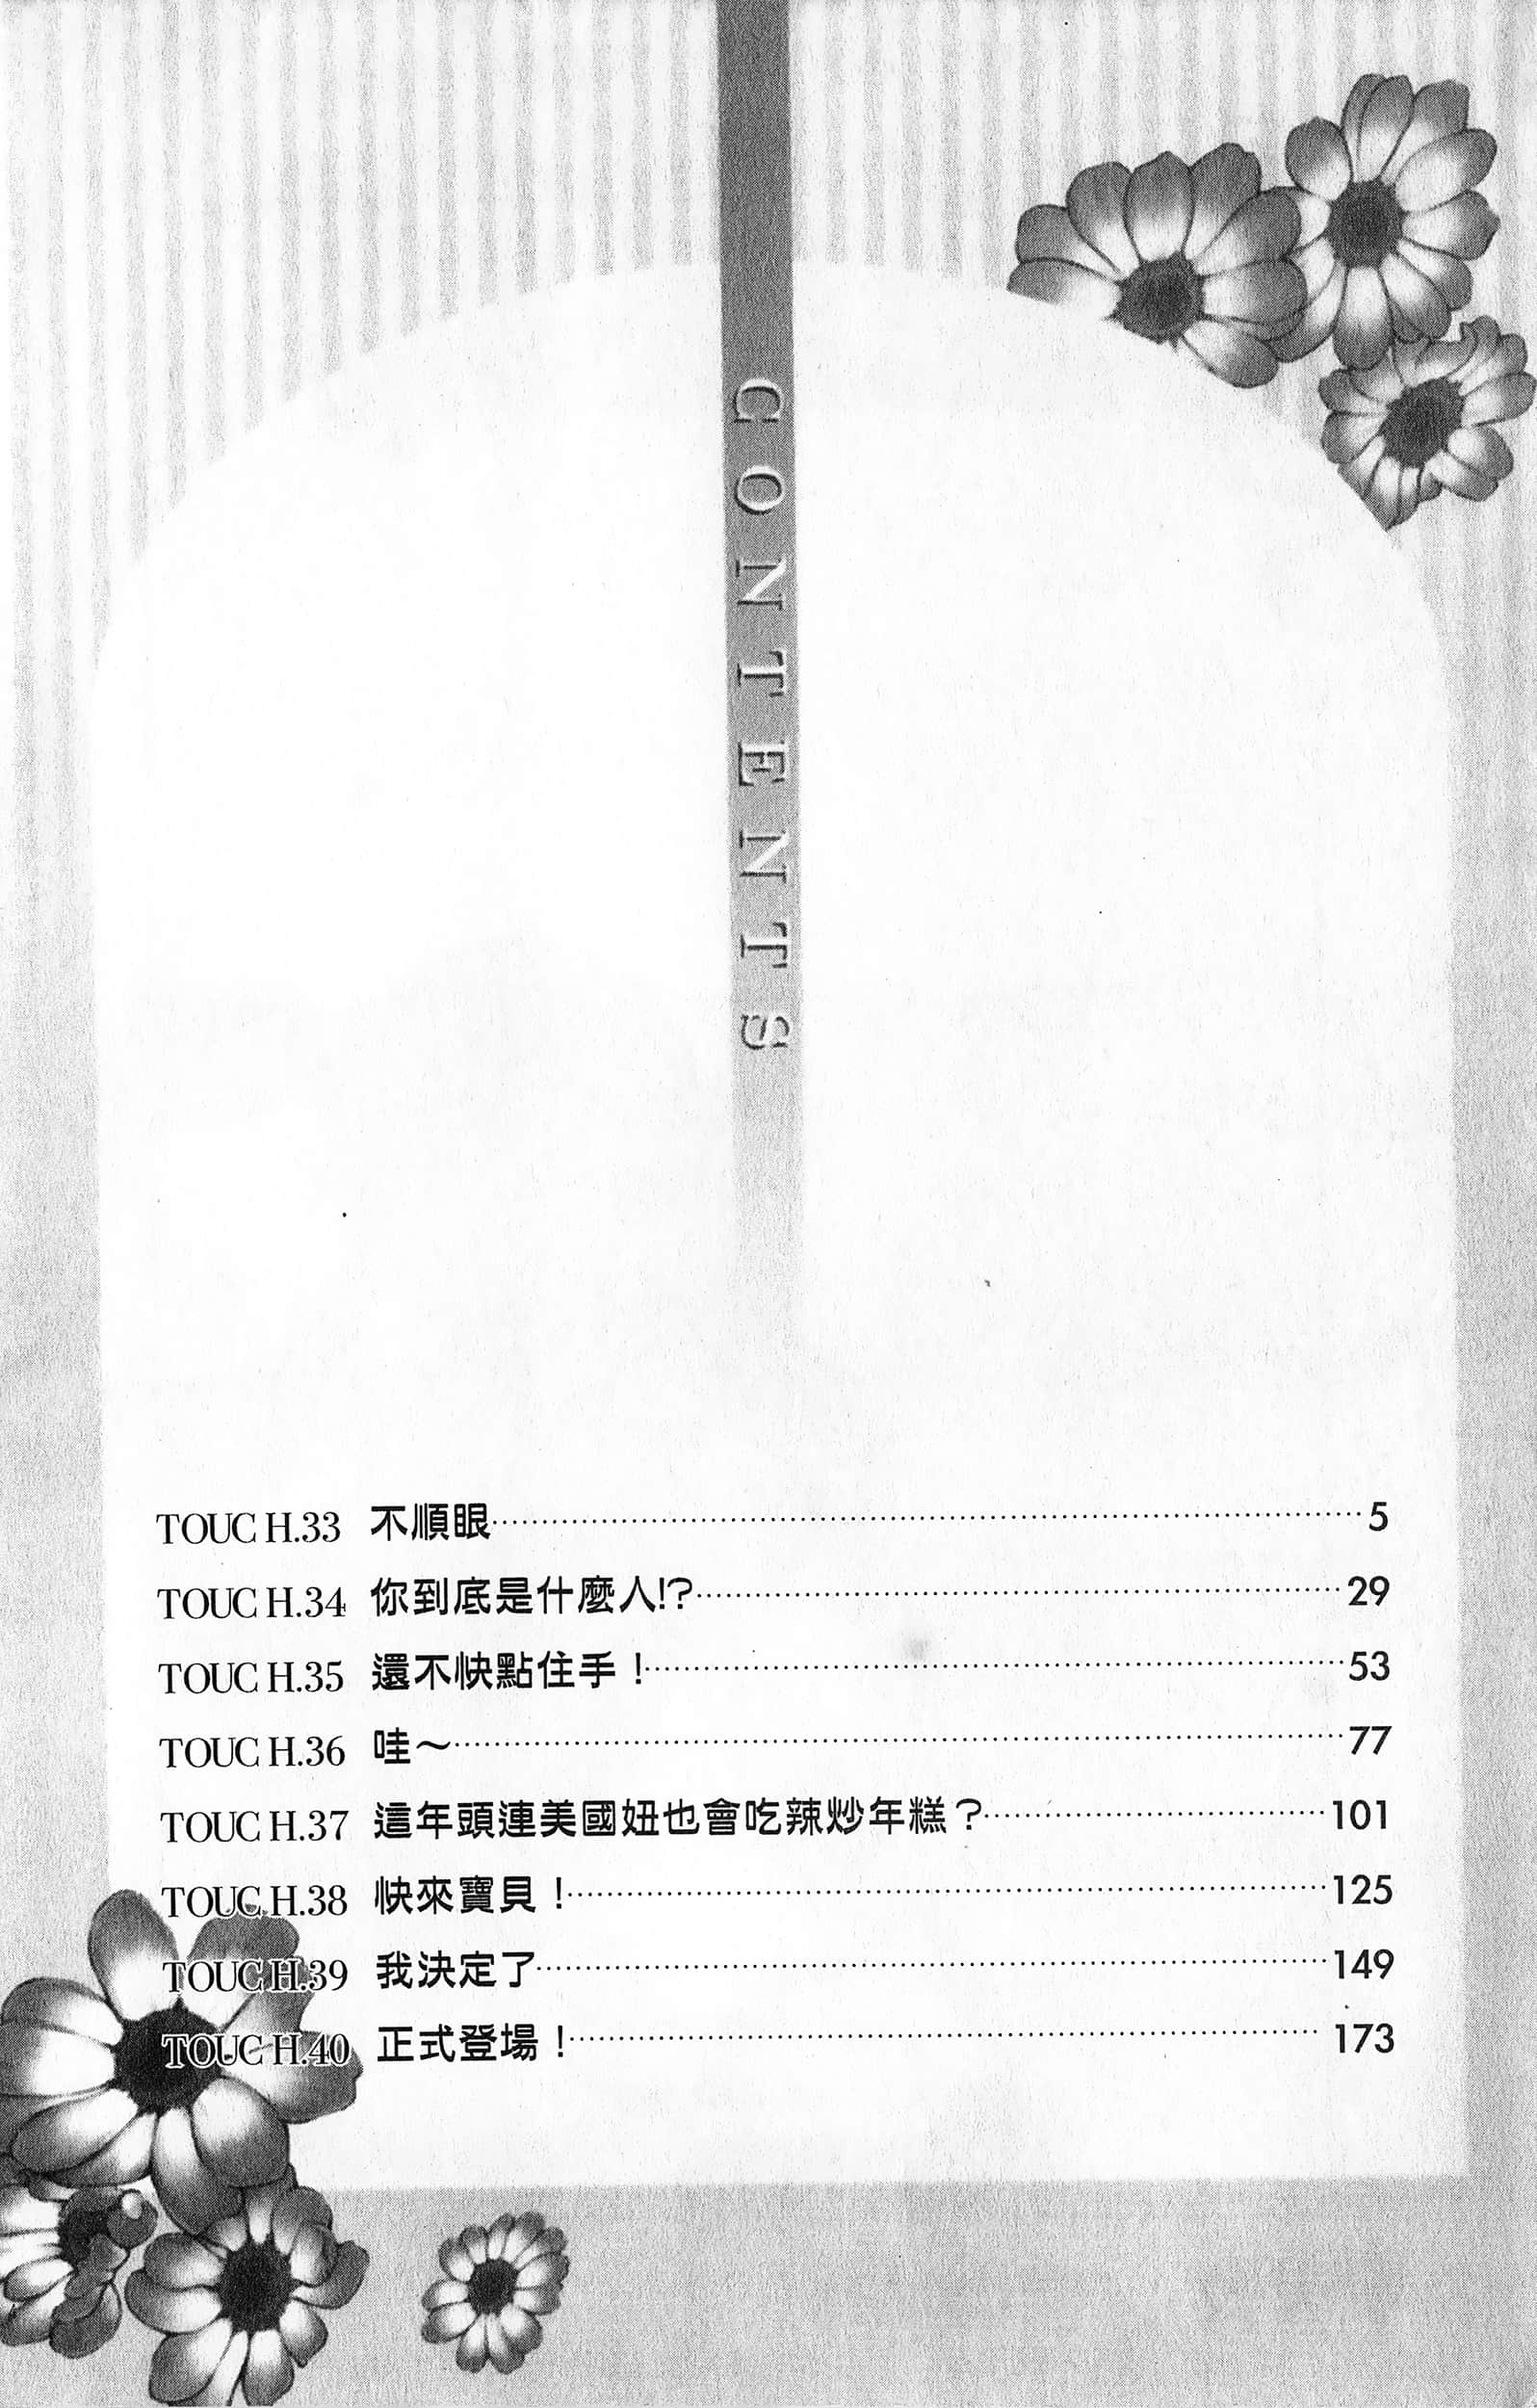 CONTENTS
TOUCH.33 不順眼 5
TOUCH.34 你到底是什麼人!? 29
TOUCH.35 還不快點住手！ 53
TOUCH.36 哇～ 77
TOUCH.37 這年頭連美國妞也會吃辣炒年糕？ 101
TOUCH.38 快來寶貝！ 125
TOUCH.39 我決定了 149
TOUCH.40 正式登場！ 173